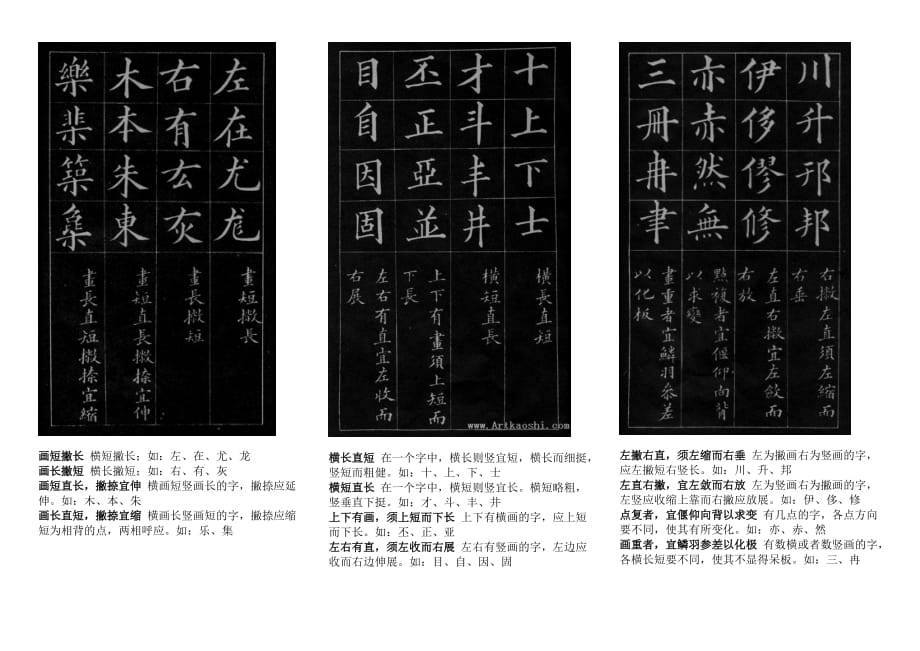 左在尤尨
右有厷灰
木本朱東
樂棐築集
畫短撇長
畫長撇短
畫短直長撇捺宜伸
畫長直短撇捺宜縮
画短撇长 横短撇长；如：左、在、尤、龙
画长撇短 横长撇短：如：右、有、灰
画短直长，撇捺宜伸 横画短竖画长的字，撇捺应延
伸。如：木、本、朱
画长直短，撇捺宜缩 横画长竖画短的字，撇捺应缩
短为相背的点，两相呼应。如：乐、集
十上下士
才斗丰井
丕正亞並
目自因固
橫長直短
橫短直長
上下有畫須上短而
下長
左右有直宜左收而
右展
www.Artkaoshi.com
横长直短 在一个字中，横长则竖宜短，横长而细挺，
竖短而粗健。如：十、上、下、士
横短直长 在一个字中，横短则竖宜长。横短略粗，
竖垂直下挺。如：才、斗、丰、井
上下有画，须上短而下长 上下有横画的字，应上短
而下长。如：丕、正、亚
左右有直，须左收而右展 左右有竖画的字，左边应
收而右边伸展。如：目、自、因、固
川升邘邦
伊侈僇修
亦赤然無
三冊冉聿
右撇左直須左縮而
右垂
左直右撇宜左斂而
右放
點複者宜偃仰向背
以求變
畫重者宜鱗羽參差
以化板
左撇右直，须左缩而右垂 左为撇画右为竖画的字，
应左撇短右竖长。如：川、升、邦
左直右撇，宜左敛而右放 左为竖画右为撇画的字，
左竖应收缩上靠而右撇应放展。如：伊、侈、修
点复者，宜偃仰向背以求变 有几点的字，各点方向
要不同，使其有所变化。如：亦、赤、然
画重者，宜鳞羽参差以化极 有数横或者数竖画的字，
各横长短要不同，使其不显得呆板。如：三、冉